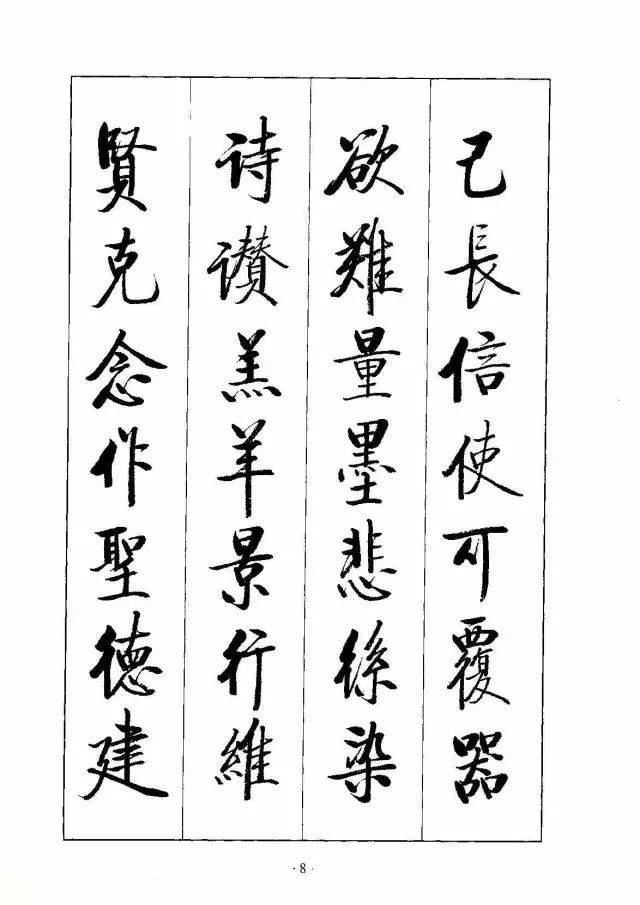 己長信使可覆器
欲難量墨悲絲染
詩讃羔羊景行維
賢克念作聖德建
· 8 ·